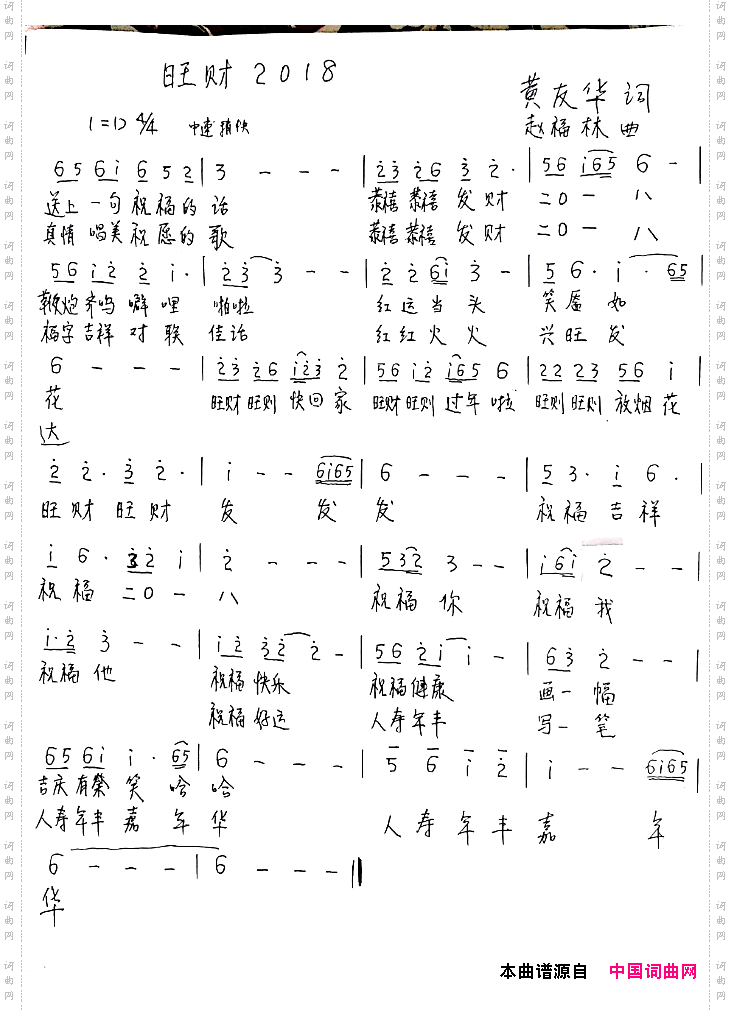 旺财 2018
黄友华 词
1=D 4/4 中速 稍快
赵福林 曲
6 5 6 i 6 5 2 | 3 - - - | 2 3 2 6 3 2 · | 5 6 i 6 5 6 - |
送上 一句 祝福的 话 恭禧 恭禧 发财 二〇一 八
真情 唱美 祝愿的 歌 恭禧 恭禧 发财 二〇一 八
5 6 i 2 2 i · | 2 3 3 - - | 2 2 6 i 3 - | 5 6 · i · 6 5 |
鞭炮 齐鸣 噼哩 啪啦 红运当头 笑靥 如
福字 吉祥 对联 佳话 红红火火 兴旺 发
6 - - - | 2 3 2 6 i 2 3 2 | 5 6 i 2 i 6 5 6 | 2 2 2 3 5 6 i |
花 旺财 旺财 快回家 旺财 旺财 过年啦 旺财 旺财 放烟花
达
2 2 · 3 2 · | i - - 6 i 6 5 | 6 - - - | 5 3 · i 6 · |
旺财 旺财 发 发 发 祝福 吉祥
i 6 · 3 2 i | 2 - - - | 5 3 2 3 - - | i 6 i 2 - - |
祝福 二〇一 八 祝福 你 祝福 我
i · 2 3 - - | i 2 3 2 2 - | 5 6 2 i i - | 6 3 2 - - |
祝福 他 祝福 快乐 祝福 健康 画一 幅
祝福 好运 人寿年丰 写一 笔
6 5 6 i i · 6 5 | 6 - - - | 5 6 i 2 | i - - 6 i 6 5 |
吉庆 有 笑 哈 哈
人寿年丰 嘉 年 华 人寿年丰 嘉 年
6 - - - | 6 - - - ‖
华
本曲谱源自 中国词曲网
词曲网